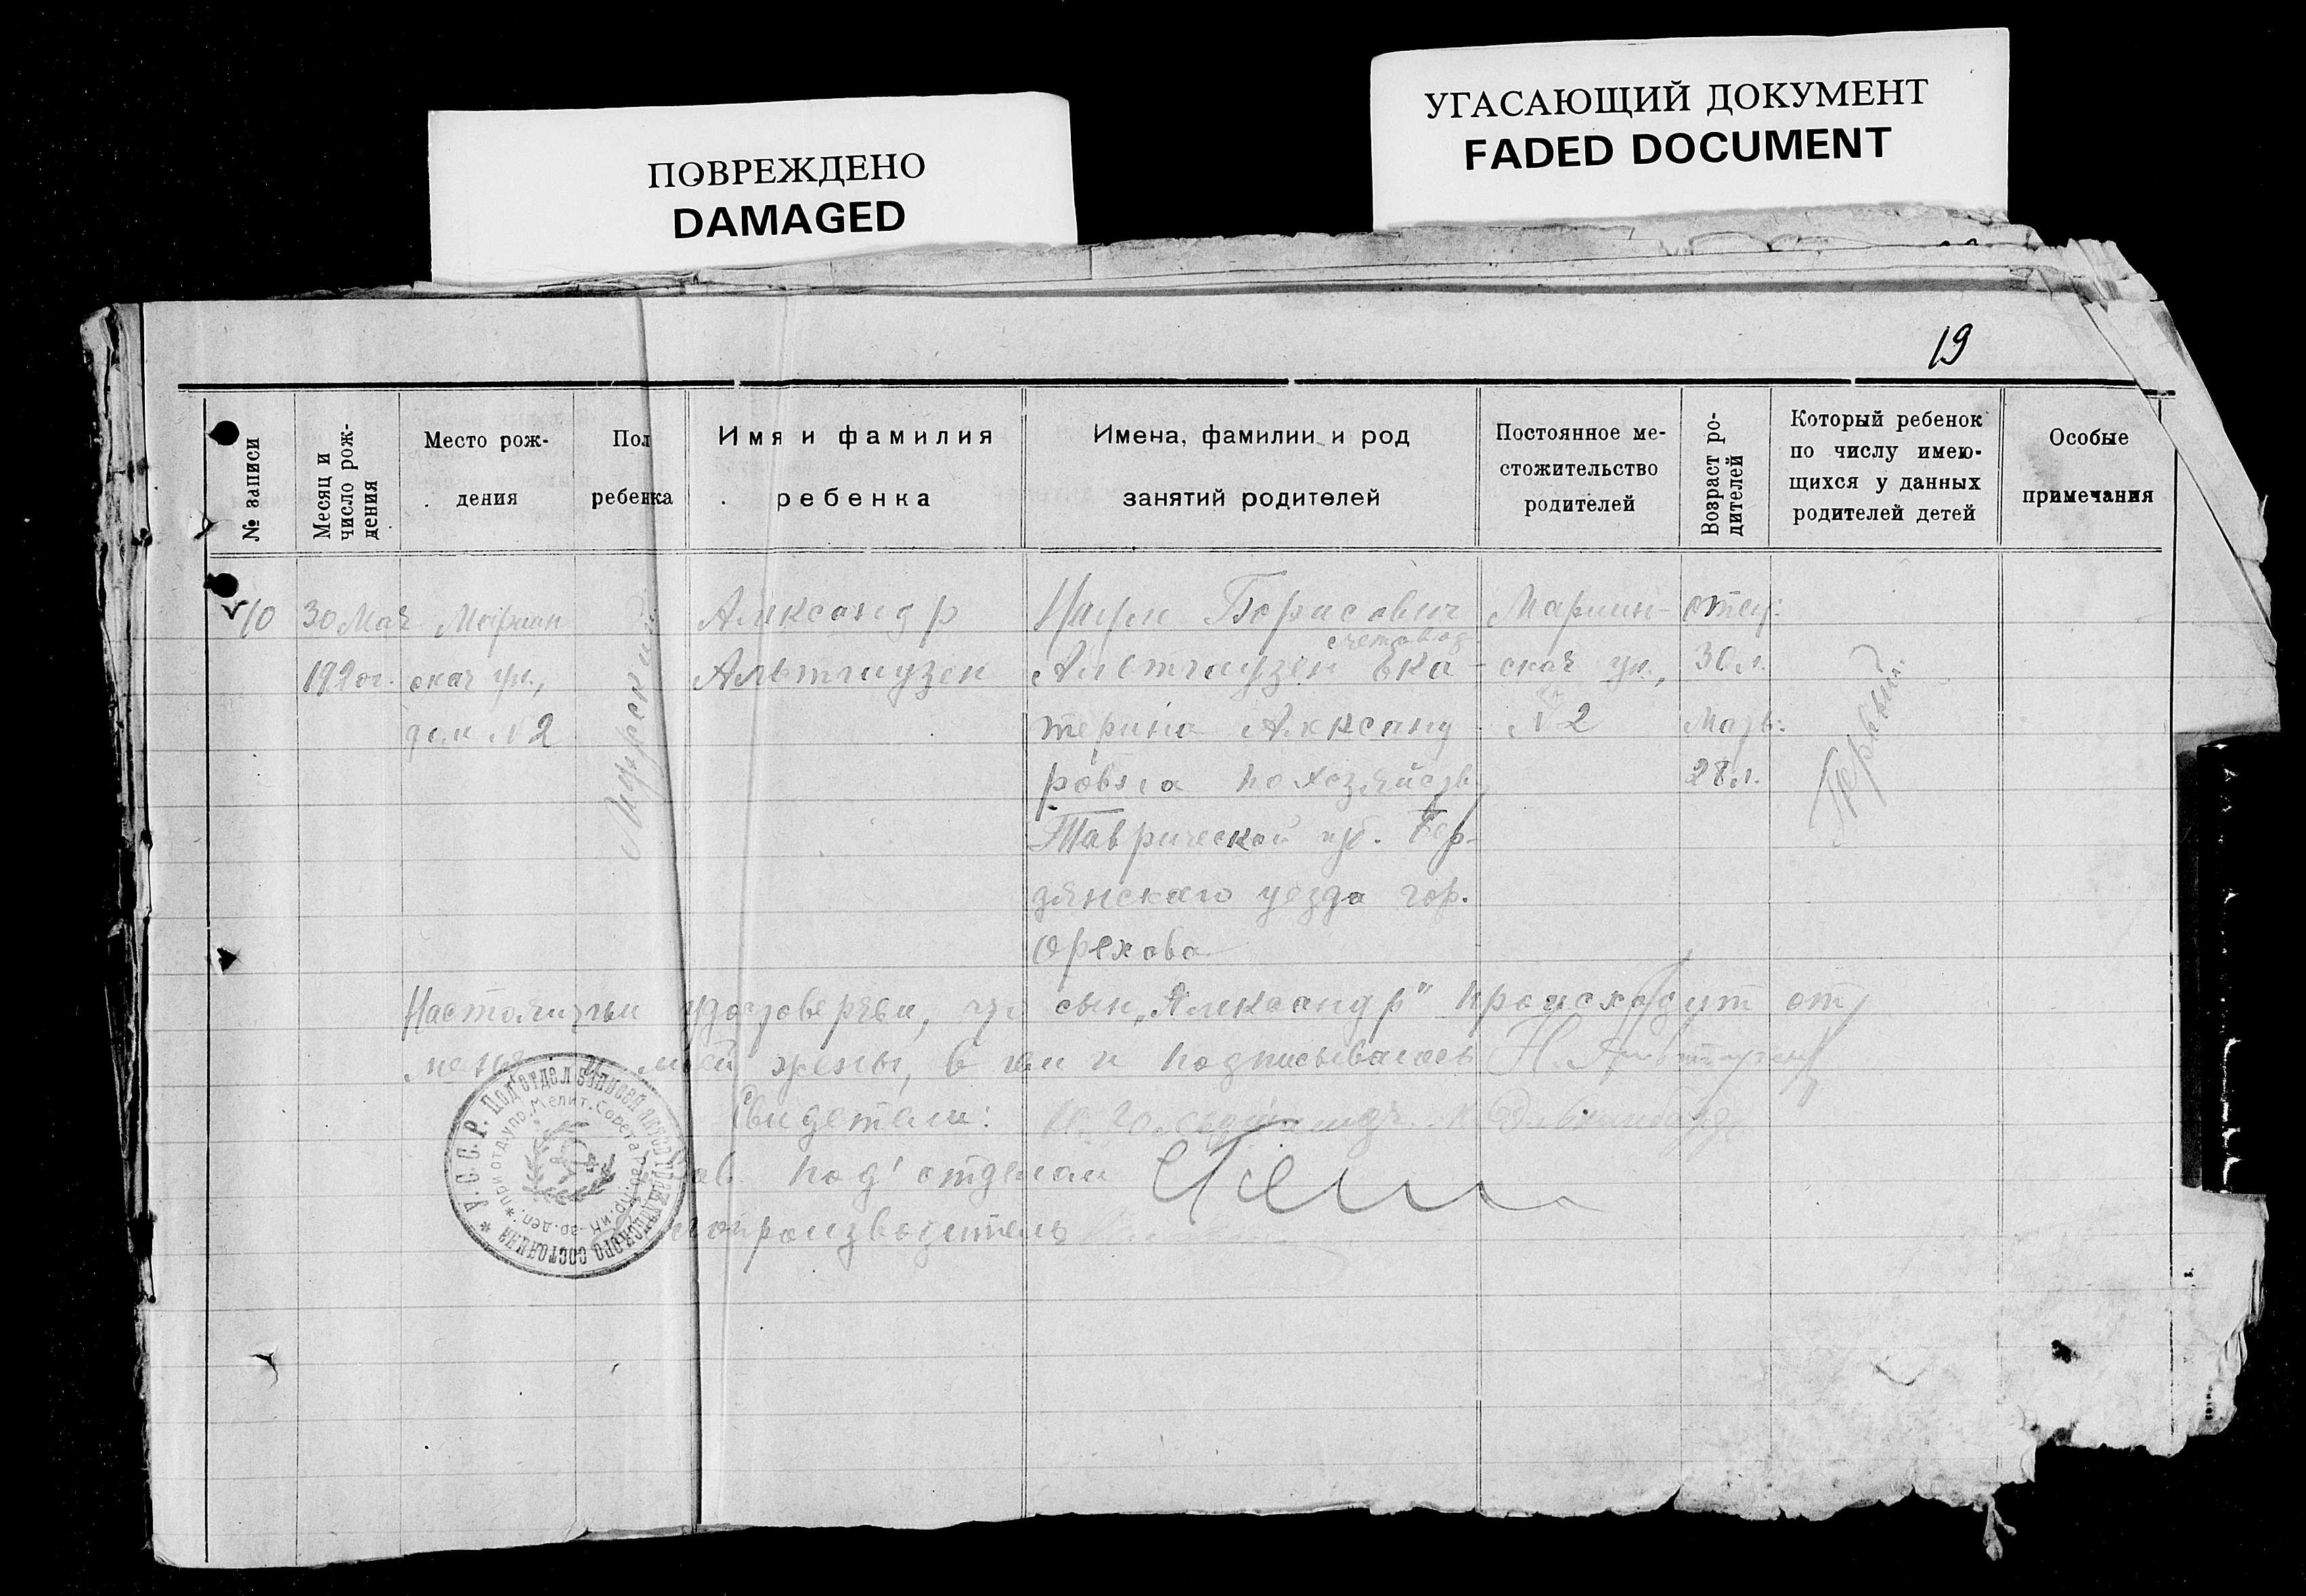 ПОВРЕЖДЕНО
DAMAGED
УГАСАЮЩИЙ ДОКУМЕНТ
FADED DOCUMENT
19
№ записи
Месяц и число рождения
Место рож-
дения
Пол
ребенка
Имя и фамилия
ребенка
Имена, фамилии и род
занятий родителей
Постоянное ме-
стожительство
родителей
Возраст ро-
дителей
Который ребенок
по числу имею-
щихся у данных
родителей детей
Особые
примечания
10
30 Мая
1920г.
Мариин
ская ул.,
дом №2
Мужской
Александр
Альтгаузен
Борисович
счетовод
Альтгаузен Ека-
терина Александ
ровна по хозяйств
Таврической губ. Бер-
дянскаго уезда гор.
Орехова
Мариин-
ская ул.,
№2
отец:
30 л.
Мать:
28 л.
Первый
Настоящим удостоверяем, что сын „Александр" происходит от
меня и моей жены, в чем и подписываюсь
Свидетели:
Зав. под'отделом
лопроизводитель
У.С.С.Р. Под'отдел записей актов гражданского состояния
при отд. упр. Мелит. Совета